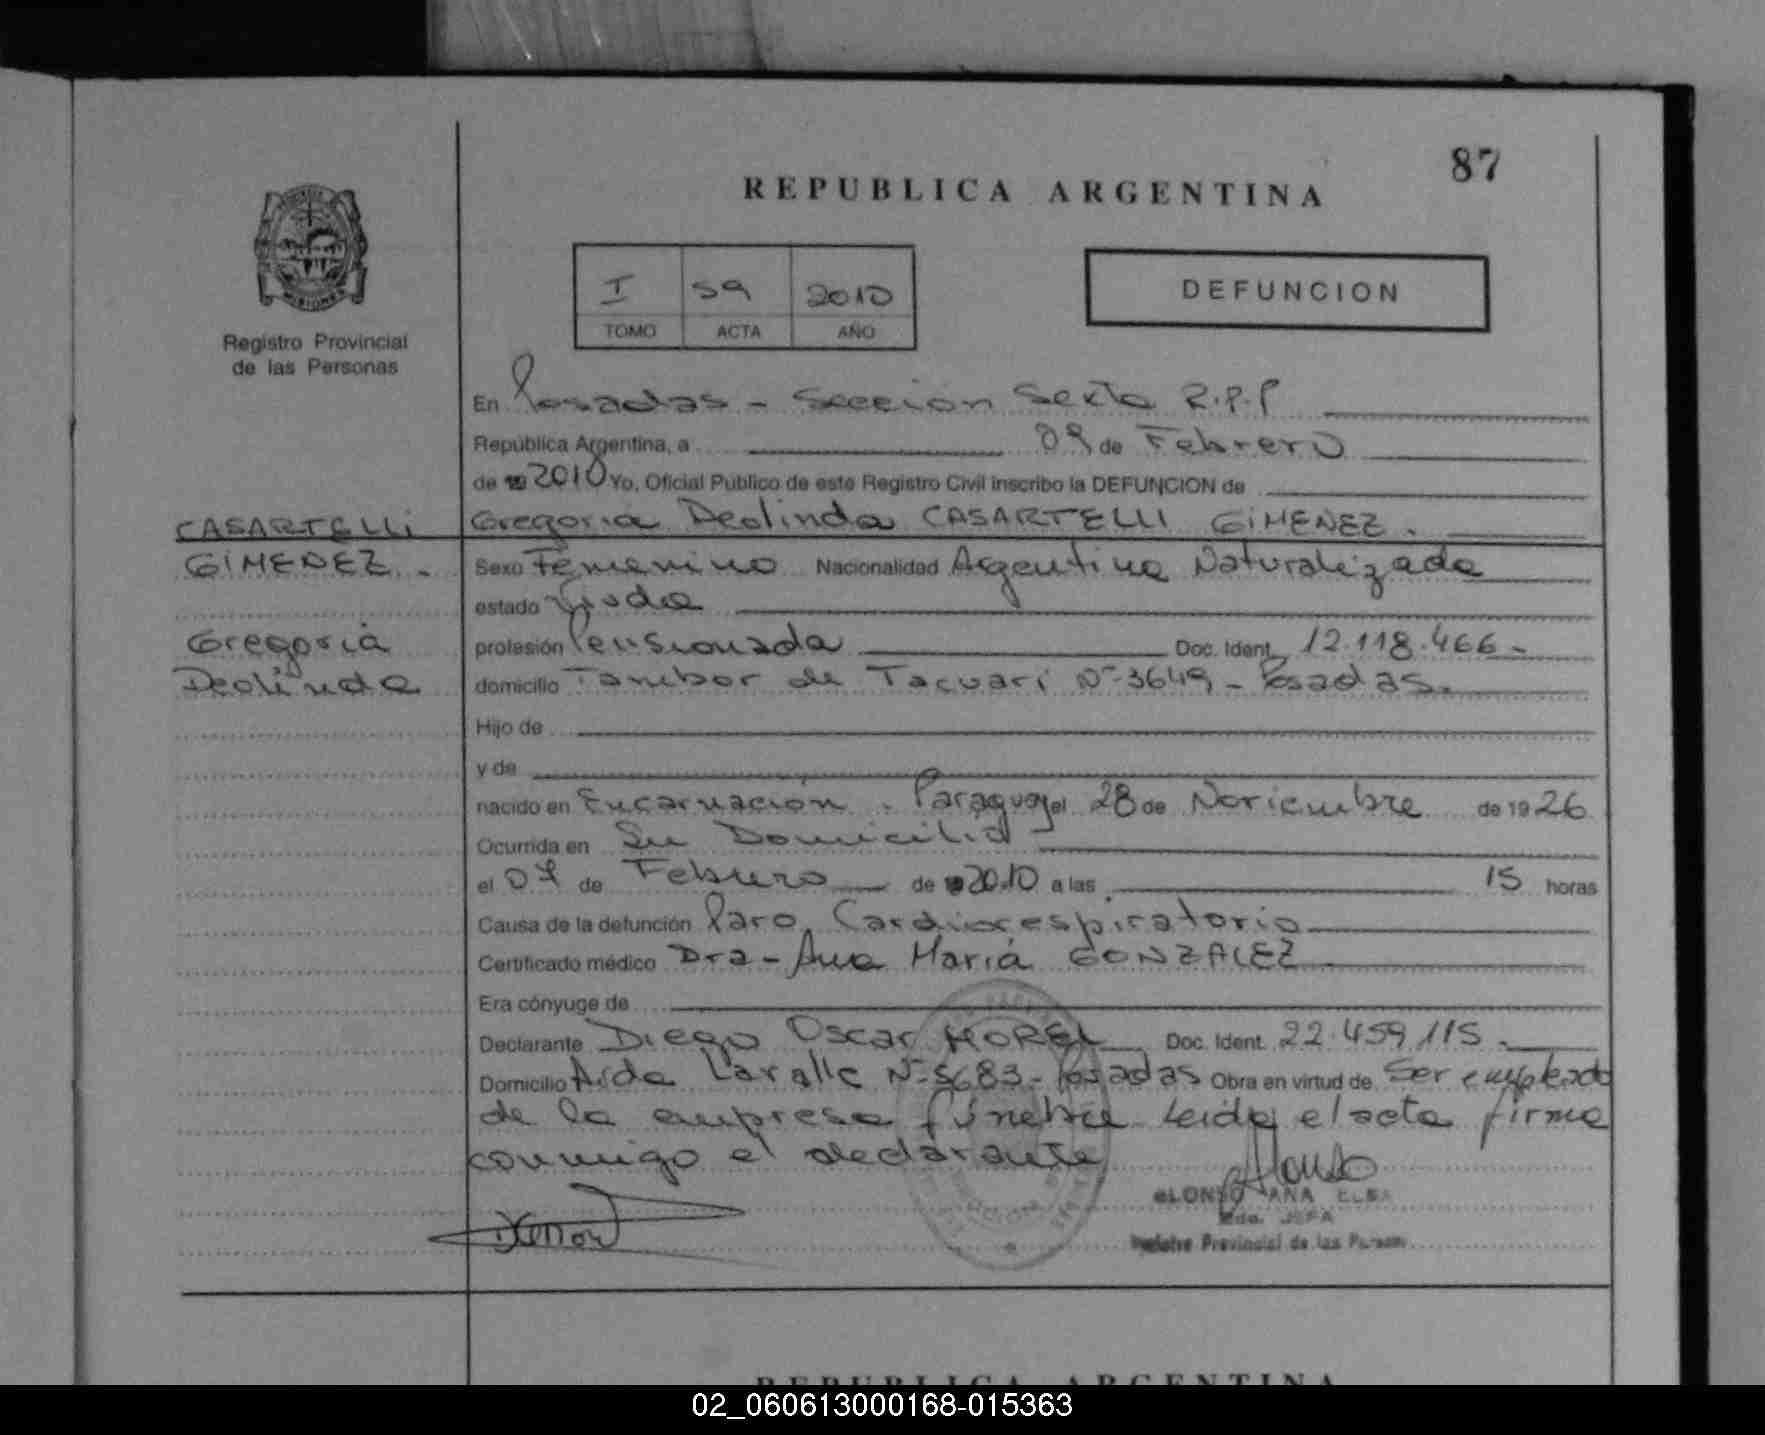 87
REPUBLICA ARGENTINA
MISIONES
Registro Provincial
de las Personas
I 59 2010
TOMO ACTA AÑO
DEFUNCION
En Posadas - Sección Sexta R.P.P
República Argentina, a 09 de Febrero
de 19 2010 Yo, Oficial Público de este Registro Civil inscribo la DEFUNCION de
CASARTELLI Gregoria Deolinda CASARTELLI GIMENEZ.
GIMENEZ. - Sexo Femenino Nacionalidad Argentina Naturalizada
estado Viuda
Gregoria profesión Pensionada Doc. Ident. 12.118.466-
Deolinda domicilio Tambor de Tacuarí N° 3649 - Posadas.
Hijo de
y de
nacido en Encarnación - Paraguay el 28 de Noviembre de 1926
Ocurrida en Su Domicilio
el 07 de Febrero de 19 2010 a las 15 horas
Causa de la defunción Paro Cardiorespiratorio
Certificado médico Dra - Ana María GONZALEZ
Era cónyuge de
Declarante Diego Oscar MOREL Doc. Ident. 22.459.115.
Domicilio Aida Lavalle N° 5683 - Posadas Obra en virtud de Ser empleado
de la empresa fúnebre leida el acta firma
conmigo el declarante
ALONSO ANA ELSA
JEFA
Registro Provincial de las Person
REPUBLICA ARGENTINA
02_060613000168-015363